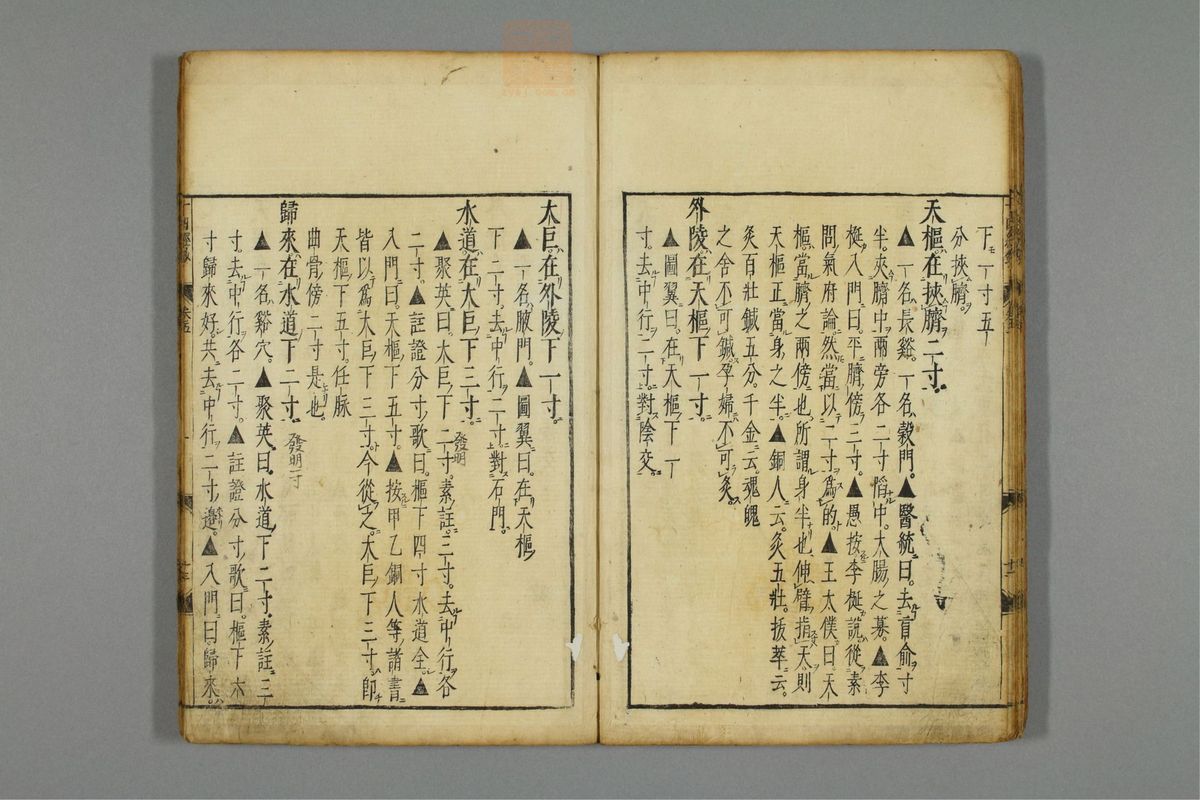 下一寸五
分挾臍。
天樞在挾臍二寸。
▲一名長谿。一名穀門。▲醫統曰。去肓俞寸
半。夾臍中兩旁各二寸陷中。大腸之募。▲李
梴入門曰。平臍傍三寸。▲愚按。李梴說從素
問氣府論。然當以二寸爲的。▲王太僕曰。天
樞當臍之兩傍也。所謂身半也。伸臂指天。則
天樞正當身之半。▲銅人云。灸五壯。拔萃云。
灸百壯鍼五分。千金云。魂魄
之舍不可鍼。孕婦不可灸。
外陵在天樞下一寸。
▲圖翼曰。在天樞下一
寸。去中行二寸。對陰交。
大巨在外陵下一寸。
▲一名腋門。▲圖翼曰。在天樞
下二寸。去中行二寸。對石門。
水道在大巨下三寸。發明二寸
▲聚英曰。大巨下二寸。素註。三寸。去中行各
二寸。▲註證分寸歌曰。樞下四寸水道全。▲
入門曰。天樞下五寸。▲按甲乙銅人等諸書
皆以爲大巨下三寸。今從之。大巨下三寸。卽
天樞下五寸。任脉
曲骨傍二寸是也。
歸來在水道下二寸。發明一寸
▲一名谿穴。▲聚英曰。水道下二寸。素註。三
寸。去中行各二寸。▲註證分寸歌曰。樞下六
寸歸來好。共去中行二寸邊。▲入門曰。歸來。